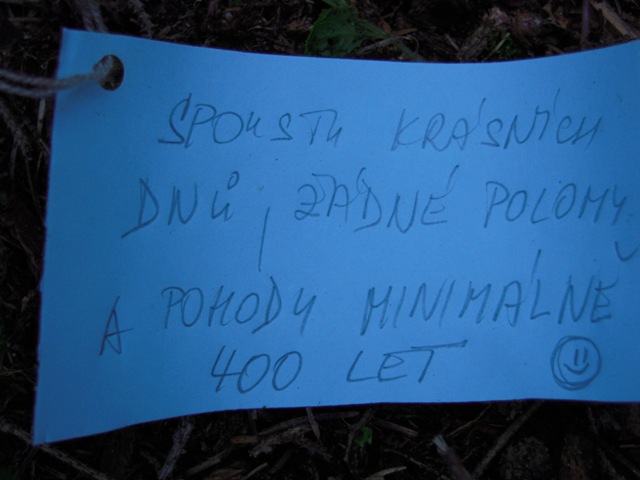 SPOUSTU KRÁSNÝCH
DNŮ, ŽÁDNÉ POLOMY
A POHODY MINIMÁLNĚ
400 LET